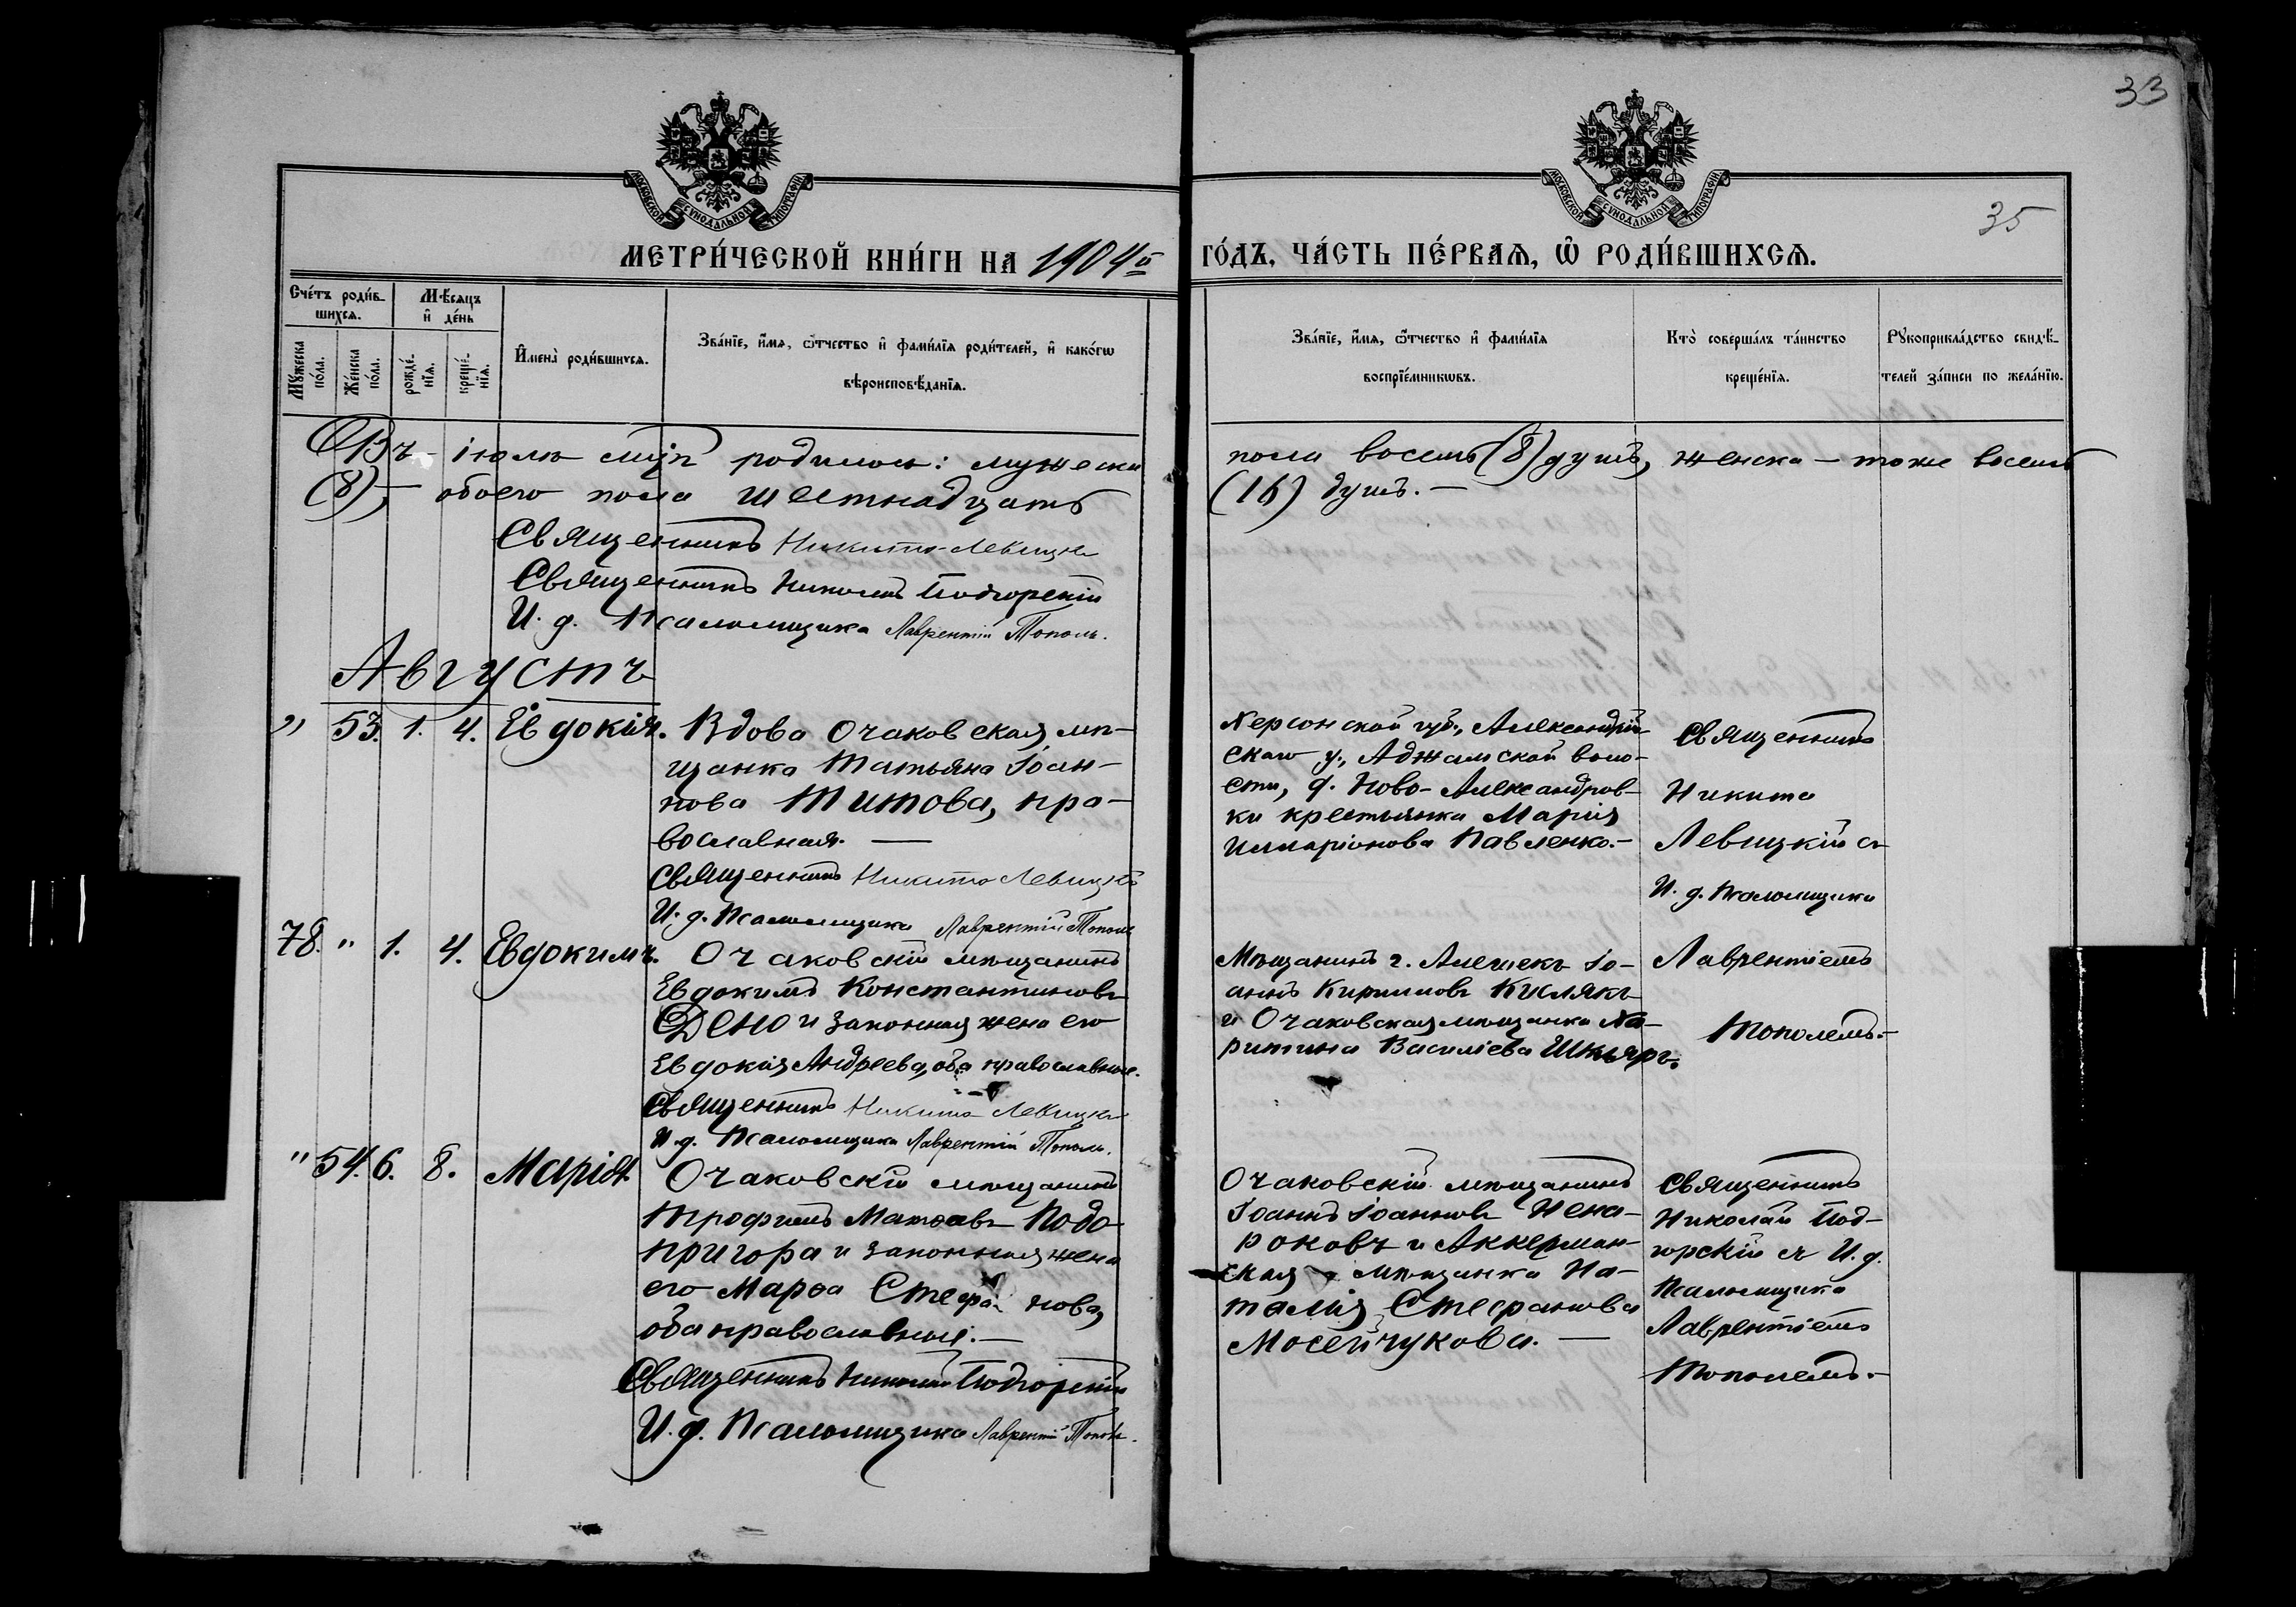 33
35
МОСКОВСКОЙ СѴНОДАЛЬНОЙ ТИПОГРАФІИ
МОСКОВСКОЙ СѴНОДАЛЬНОЙ ТИПОГРАФІИ
МЕТРИ́ЧЕСКОЙ КНИ́ГИ НА 1904й ГО́ДЪ, ЧА́СТЬ ПЕ́РВАѦ, Ѡ РОДИ́ВШИХСѦ.
Сче́тъ роди́в-
шихсѧ.
Мꙋжеска по́ла.
Же́нска по́ла.
Мѣ́сѧцъ
и҆ де́нь
рожде́-
нїѧ.
креще́-
нїѧ.
И҆мена̀ роди́вшихсѧ.
Зва́нїе, и҆́мѧ, ѻ҆́тчество и҆ фами́лїѧ роди́телей, и҆ како́гѡ
вѣроисповѣ́данїѧ.
Зва́нїе, и҆́мѧ, ѻ҆́тчество и҆ фами́лїѧ
воспрїе́мникѡвъ.
Кто̀ соверша́лъ та́инство
креще́нїѧ.
Рꙋкоприкла́дство свидѣ́-
телей за́писи по жела́нїю.
Въ іюлѣ мцѣ родилось: мужеска пола восемь (8) душъ, женска – тоже восемь
(8), – обоего пола шестнадцать (16) душъ. –
Священникъ Никита Левицкій
Священникъ Николай Подгорскій
И. д. Псаломщика Лаврентій Тополь.
Августъ
" 53. 1. 4. Евдокія.
Вдова Очаковская мѣ-
щанка Татьяна Іоан-
нова Титова, пра-
вославная. —
Священникъ Никита Левицкій
И. д. Псаломщика Лаврентій Тополь
Херсонской губ., Александрій-
скаго у., Аджамской воло-
сти, д. Ново-Александров-
ки крестьянка Марія
Илларіонова Павленко. –
Священникъ
Никита
Левицкій съ
И. д. Псаломщика
Лаврентіемъ
Тополемъ. –
78. " 1. 4. Евдокимъ.
Очаковскій мѣщанинъ
Евдокимъ Константиновъ
Дено и законная жена его
Евдокія Андреева, оба православные.
Священникъ Никита Левицкій
И. д. Псаломщика Лаврентій Тополь.
Мѣщанинъ г. Алешекъ Іо-
аннъ Кирилловъ Кислякъ
и Очаковская мѣщанка Ха-
ритина Василіева Шкьяръ.
" 54. 6. 8. Марія.
Очаковскій мѣщанинъ
Трофимъ Матѳеевъ Подо-
пригора и законная жена
его Марѳа Стефанова,
оба православные. —
Священникъ Николай Подгорскій
И. д. Псаломщика Лаврентій Тополь.
Очаковскій мѣщанинъ
Іоаннъ Іоанновъ Нена-
роковъ и Аккерман-
ская мѣщанка На-
талія Стефанова
Мосейчукова. —
Священникъ
Николай Под-
горскій съ И. д.
Псаломщика
Лаврентіемъ
Тополемъ. –